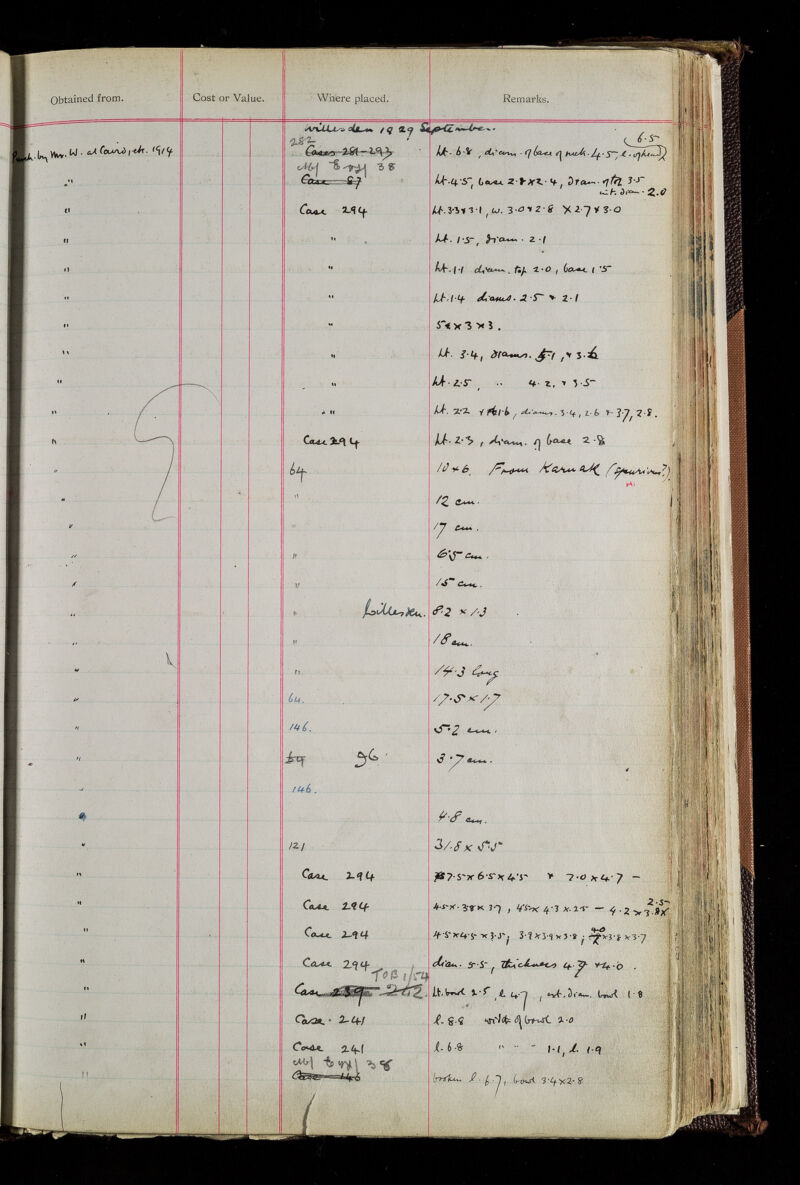 Obtained from. Cost or Value. Where placed. Remarks.
Willesden 19 29 September.
282
Purch. by Mr. W. at Cairo, etc. 1914 Cases 281-293 ht. 6.8, diam. of base of neck. 4.5, l. of head 6.5
38
" Case 87 ht. 4.5, base 2.8 x 2.4, diam. of top 3.5
int. diam. 2.0
" Case 294 ht. 3.3 & 3.1, w. 3.0 & 2.8 x 2.7 & 3.0
" " ht. 1.5, diam. 2.1
" " ht. 1.1 diam. top 2.0, base 1.5
" " ht. 1.4 diams. 2.5 & 2.1
" " 5 x 3 x 3.
" " ht. 3.4, diams. 5.1, & 3.6
" " ht. 2.5, " 4.2, & 3.5
" " ht. 2.2 & 1.6, diams. 3.4, 2.6 & 3.7, 2.8.
" Case 294 ht. 2.3, diam. of base 2.8
" 64 10 x 6. From Karnak (spurious?)
" " 12 cm.
" " 17 cm.
" " 6.5 cm.
" " 15 cm.
" " Willesden. 8.2 x 1.3
" " 18 cm.
" " 14.3 long
" 64. 17.5 x 1.7
" 146. 5.2 cm.
" 64 96. 3.7 cm.
" 146.
" 4.8 cm.
" 121 31.8 x 5.5
" Case 294 7.5 x 6.5 x 4.5 & 7.0 x 4.7 -
" Case 294 4.5 x 3.8 x 3.7, 4.5 x 4.3 x 2.5 - 4.2 x 3.8 x 2.5
" Case 294 4.5 x 4.5 x 3.5, 3.9 x 3.9 x 3.8, 4.0 x 3.8 x 3.7
" Case 294 diam. 5.5, thickness 4.7 & 4.0.
TOB 1/54
" Case 239 242. ht. bowl 2.5, l. 4.7, ext. diam. bowl 1.8
" Case. 241 l. 8.8 width of bowl 2.0
" Case 241 l. 6.8 " " " 1.1, l. 1.9
38
" Case 146 broken l. 6.7, bowl 3.4 x 2.8